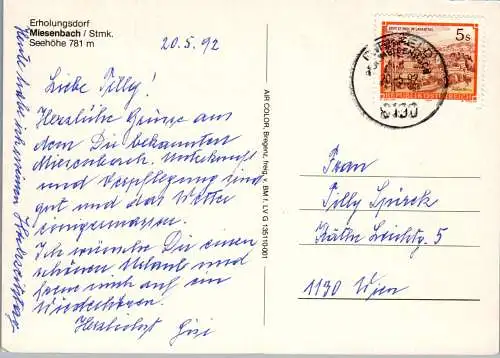 Erholungsdorf
Miesenbach / Stmk.
Seehöhe 781 m
20.5.92
Liebe Tilly!
Herzliche Grüsse aus
dem Dir bekannten
Miesenbach. Unterkunft
und Verpflegung sind
gut und das Wetter
einigermassen.
Ich wünsche Dir einen
schönen Urlaub und
freue mich auf ein
Wiedersehen.
Herzlichst Gisi
Heute habe ich meinen
AIR COLOR, Bregenz, freig. v. BM f. LV G
5s
REPUBLIK ÖSTERREICH
8190
Frau
Tilly
Käthe 5
1130 Wien